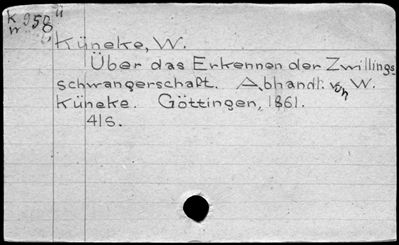 K 958 ü
w
Küneke, W.
Über das Erkennen der Zwillings-
schwangerschaft. Abhandl. von W.
Küneke. Göttingen, 1861.
41 S.